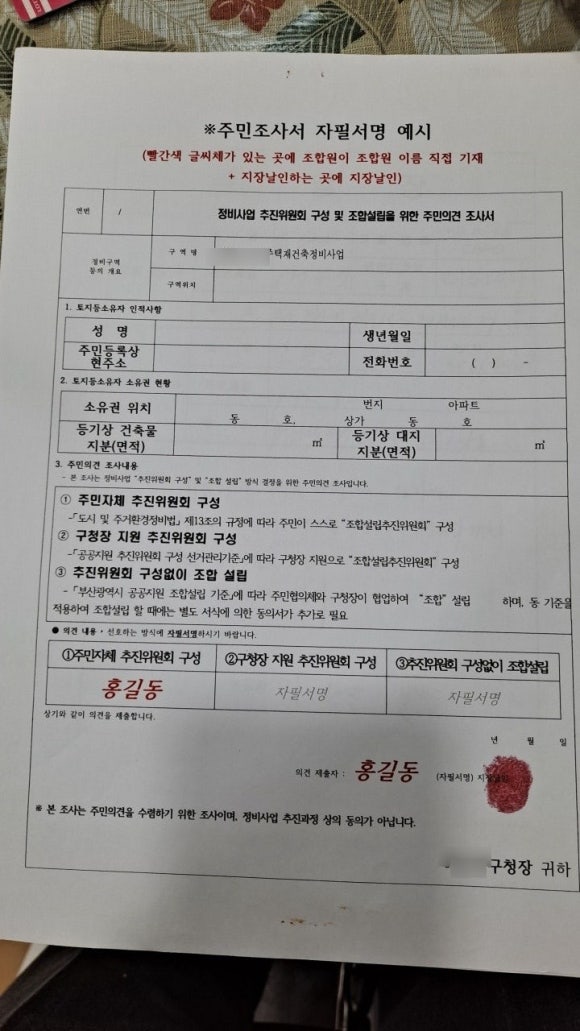 ※주민조사서 자필서명 예시
(빨간색 글씨체가 있는 곳에 조합원이 조합원 이름 직접 기재
+ 지장날인하는 곳에 지장날인)
연번 / 정비사업 추진위원회 구성 및 조합설립을 위한 주민의견 조사서
정비구역 등의 개요
구 역 명 주택재건축정비사업
구역위치
1. 토지등소유자 인적사항
성 명 생년월일
주민등록상 현주소 전화번호 ( ) -
2. 토지등소유자 소유권 현황
소유권 위치 번지 아파트
동 호, 상가 동 호
등기상 건축물 지분(면적) ㎡ 등기상 대지 지분(면적) ㎡
3. 주민의견 조사내용
- 본 조사는 정비사업 "추진위원회 구성" 및 "조합 설립" 방식 결정을 위한 주민의견 조사입니다.
① 주민자체 추진위원회 구성
-「도시 및 주거환경정비법」 제13조의 규정에 따라 주민이 스스로 "조합설립추진위원회" 구성
② 구청장 지원 추진위원회 구성
-「공공지원 추진위원회 구성 선거관리기준」에 따라 구청장 지원으로 "조합설립추진위원회" 구성
③ 추진위원회 구성없이 조합 설립
- 「부산광역시 공공지원 조합설립 기준」에 따라 주민협의체와 구청장이 협업하여 "조합" 설립 하며, 동 기준을
적용하여 조합설립 할 때에는 별도 서식에 의한 동의서가 추가로 필요
● 의견 내용 · 선호하는 방식에 자필서명하시기 바랍니다.
①주민자체 추진위원회 구성 ②구청장 지원 추진위원회 구성 ③추진위원회 구성없이 조합설립
홍길동 자필서명 자필서명
상기와 같이 의견을 제출합니다.
년 월 일
의견 제출자 : 홍길동 (자필서명) 지장날인
※ 본 조사는 주민의견을 수렴하기 위한 조사이며, 정비사업 추진과정 상의 동의가 아닙니다.
구청장 귀하